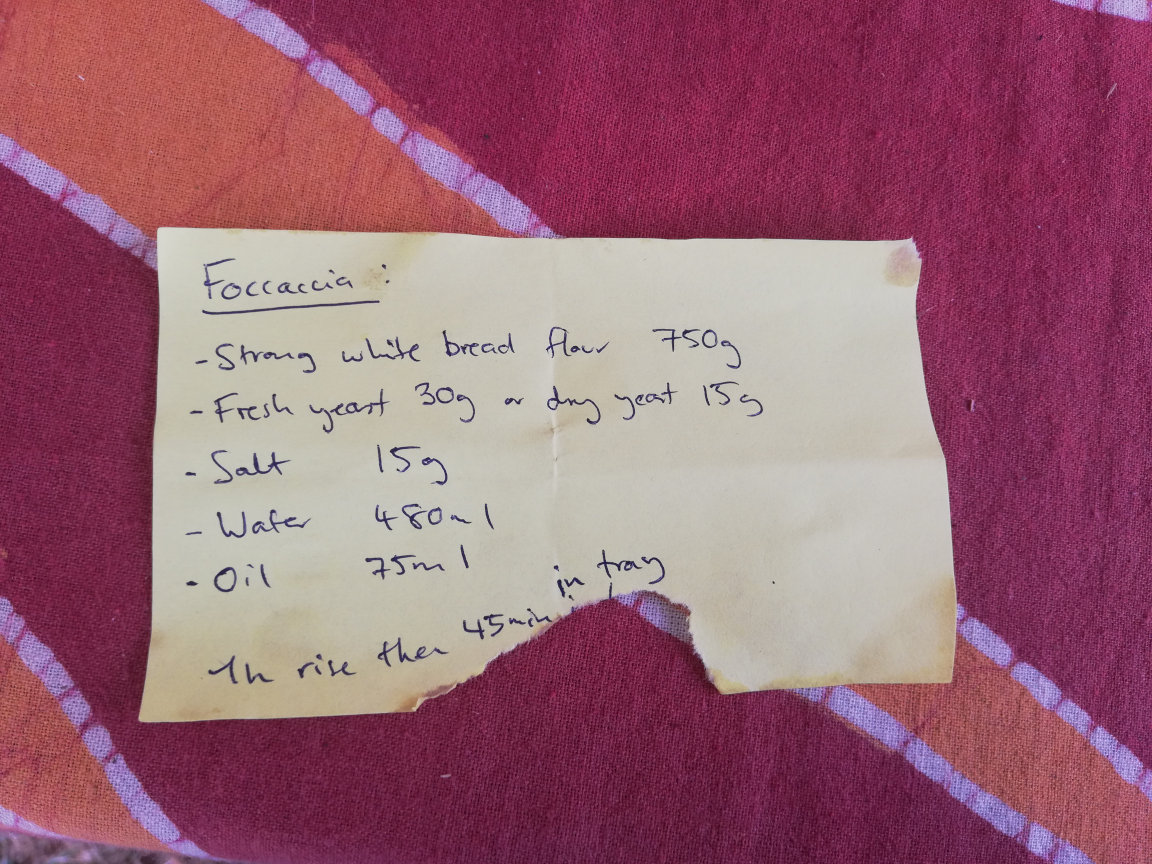 Foccaccia :
- Strong white bread flour 750g
- Fresh yeast 30g or dry yeast 15g
- Salt 15g
- Water 480ml
- Oil 75ml
1h rise then 45min in tray